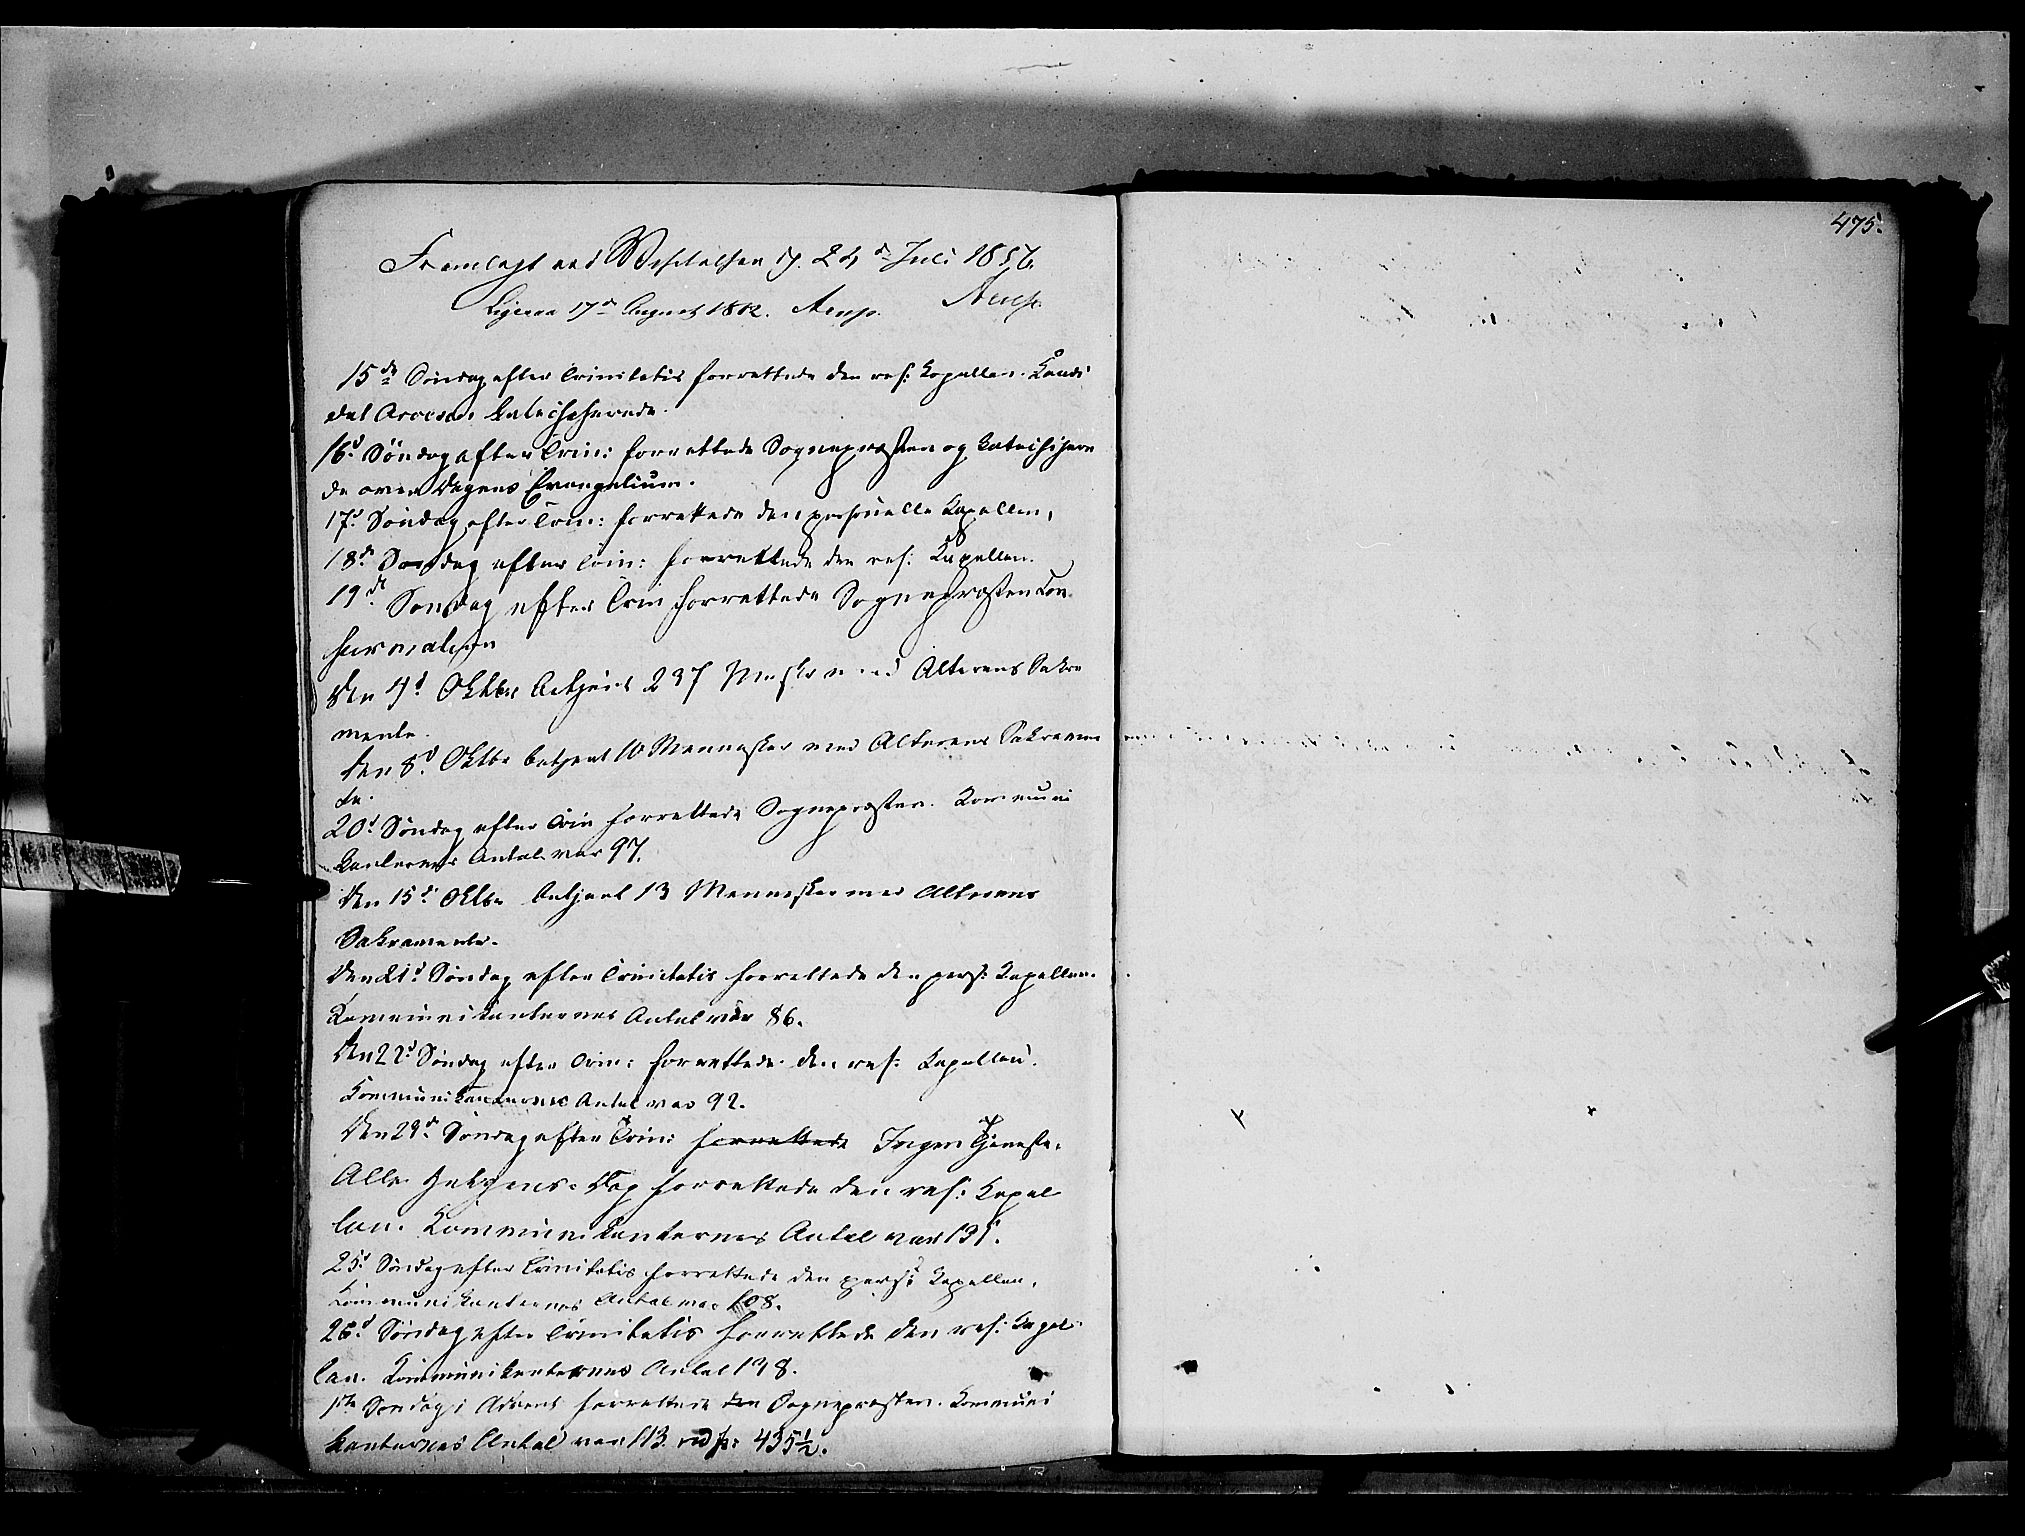 475.
Fremlagt ved Visitatsen d. 24de Juli 1856.
Arup.
Ligesaa 17de August 1862. Arup.
15de Søndag efter Trinitatis forrettede den res: Kapellan. Kandi
dat katechiserede.
16d Søndag efter Trin: forrettede Sognepræsten og katechisere
de over Dagens Evangelium.
17d Søndag efter Trin: forrettede den personelle Kapellan.
18de Søndag efter Trin: forrettede den res: Kapellan.
19de Søndag efter Trin forrettede Sognepræsten Con
firmation
Den 4d Oktbr betjent 237 Mskr med Alterens Sakra
mente.
Den 8d Oktbr betjent 10 Mennesker med Alterens Sakramen
te.
20d Søndag efter Trin forrettede Sognepræsten. Kommuni
kanternes Antal var 97.
Den 15d Oktbr betjent 13 Mennesker med Alterens
Sakramente.
Den 21d Søndag efter Trinitatis forrettede den pers: Kapellan.
Kommunikanternes Antal var 86.
Den 22d Søndag efter Trin: forrettede den res: Kapellan.
Kommunikanternes Antal var 92.
Den 23d Søndag efter Trin: forrettede Ingen Tjeneste.
Alle Helgens Dag forrettede den res: Kapel
lan. Kommunikanternes Antal var 131.
25d Søndag efter Trinitatis forrettede den pers: Kapellan.
Kommunikanternes Antal var 108.
26d Søndag efter Trinitatis forrettede den res: Kapel
lan. Kommunikanternes Antal 138.
1ste Søndag i Advent forrettede den Sognepræsten. Kommuni
kanternes Antal var 113. vid p: 435½.